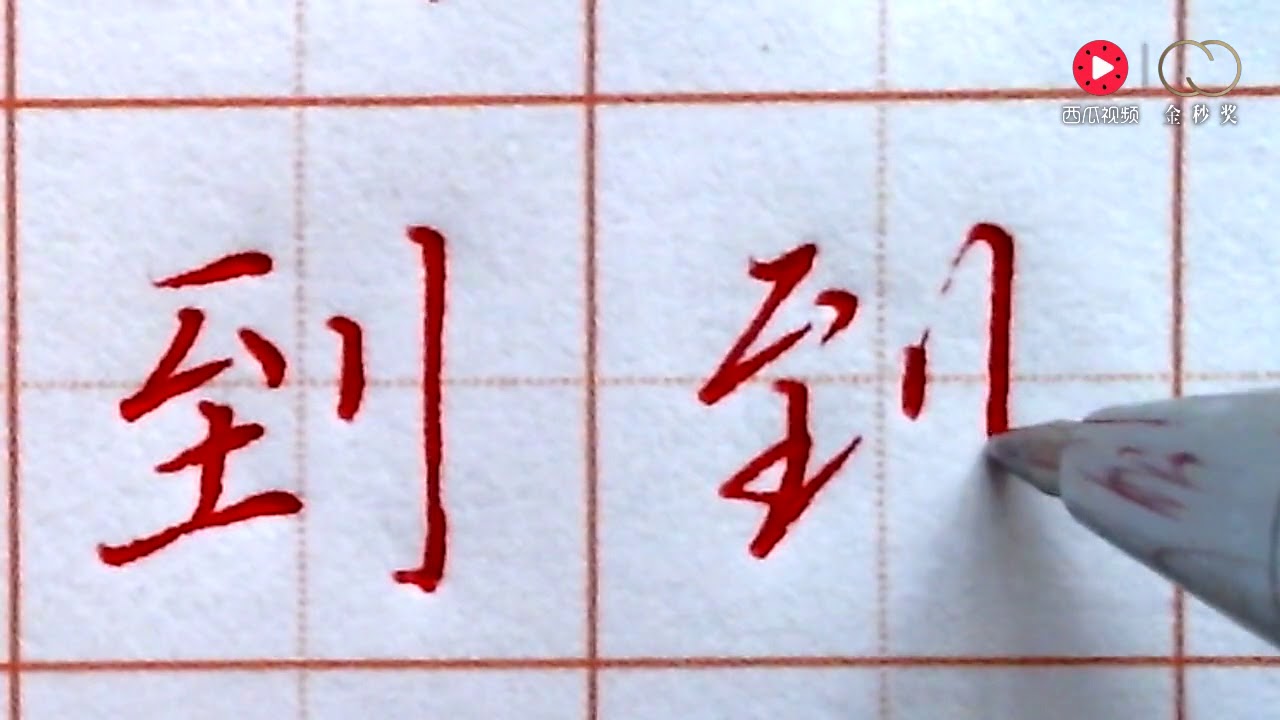 西瓜视频 金秒奖
到 到